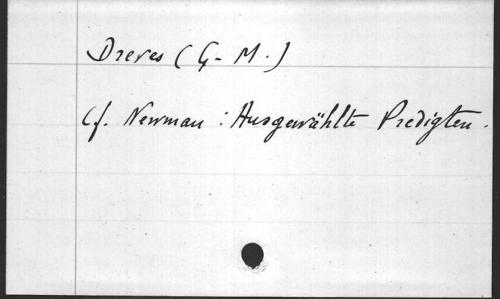 Dreves (G-M.)
Cf. Newman : Ausgewählte Predigten.